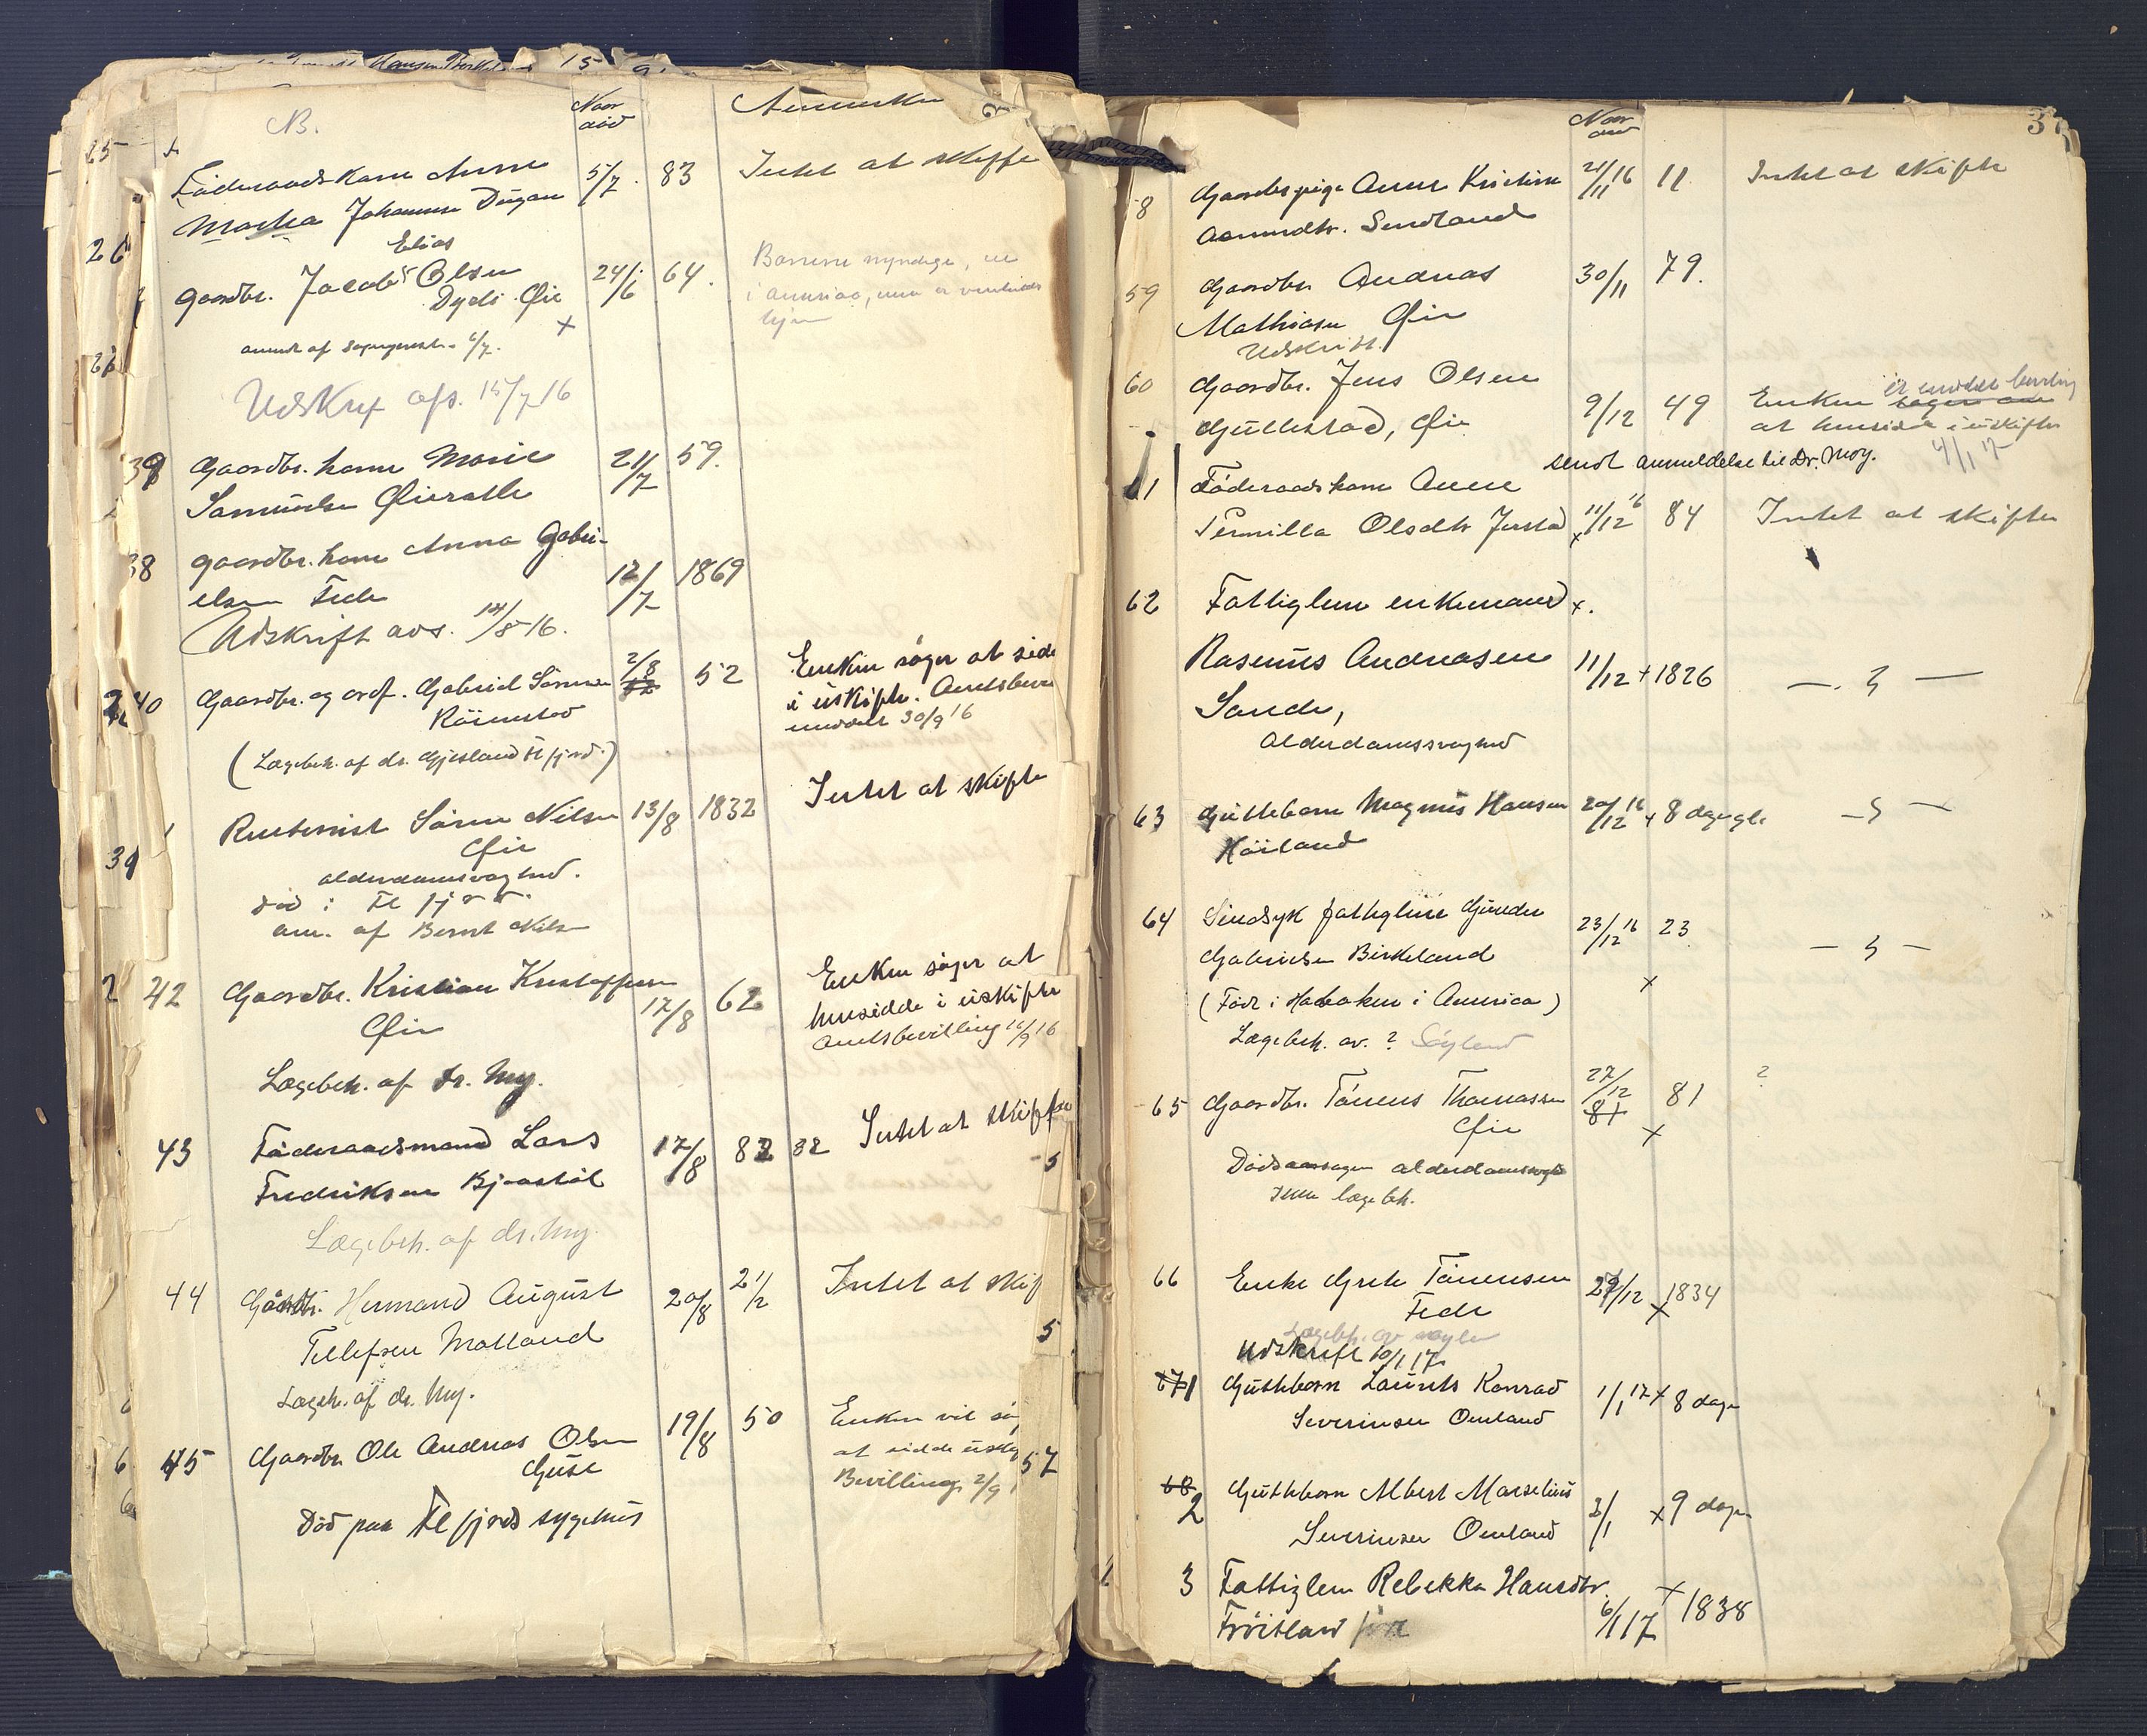 N.B.
Naar
død
Anmerkn
2
Føderaadskone Anne
Martha Johannesen Dugan
5/7
83
Intet at skifte
26
Elias
Gaardbr. Jacob Olsen
Dydi Øie
24/6
64.
Barnene myndige,
i Amerika,
hjem
anmeldt af
6/7.
Udskrift afs. 15/7 16
39
Gaardbr. kone Marie
Samuelsen Øierath
21/7
59.
38
gaardbr. kone Anna Gabri-
elsen Fede
12/7
1869
Udskrift avs. 14/8-16.
40
Gaardbr. og ordf. Gabriel Sørensen
Röinestad
2/8
52
Enken søger at side
i uskifte. Amtsbev
meddelt 30/9 16
(Lægebeh. af dr. Gjesland Flfjord.)
39
Rentenist Søren Nilsen
Øie
13/8
1832
Intet at skifte
alderdomssvaghed.
død i Flfjord.
anm. af Bernt Nilsen
42
Gaardbr. Kristian Kristoffersen
Øie
17/8
62
Enken søger at
hensidde i uskifte
Amtsbevilling 11/9 16
Lægebeh. af dr. My.
43
Føderaadsmand Lars
Fredriksen Bjerstöl
17/8
82
32
Intet at skifte
Lægebeh. af dr. My.
44
Hermand August
Tellefsen Molland
20/8
2 1/2
Intet at skif
5
Lægeh. af dr. My.
45
Gaardbr. Ole Andreas Olsen
Guse
19/8
50
Enken vil søg
at sidde uskif
Bevilling 2/9
57
Død paa Flfjord sygehus
Naar
død
3
8
Gaardspige Anne Kristine
Aamundtr. Sendland
21/11 16
11
Intet at skifte
59
Gaardbr. Andreas
Mathiasen Øie
30/11
79.
Udskrift.
60
Gaardbr. Jens Olsen
Gullestad, Øie
9/12
49
Enken er meddelt bevilling
at hensidde i uskifte
4/1 17
sendt anmeldelse til Dr. Moy.
61
Føderaadskone Anne
Pernilla Olsdtr Jerstad
x 11/12 16
84
Intet at skifte
62
Fattiglem enkemand x.
Rasmus Andreasen
Sande,
11/12 +
1826
— 5 —
Alderdomssvaghed
63
Guttebarn Magnus Hansen
Höiland
20/12 16 x
8 dage gl.
— 5 —
64
Sindsyk fattiglem Gunder
Gabrielsen Birkeland
23/12 16
23
— 5 —
x
(Født i Hoboken i America)
Lægebeh. av. ? Søyland
65
Gaardbr. Tönnes Thomassen
Øie
27/12
81
81
?
x
Dødsaarsagen alderdomssvaghed
Ikke lægebeh.
66
Enke Grete Tönnesen
Fede
29/12
x
1834
Lægebeh. av
Udskrift 10/1 17.
67 1
Guttebarn Laurits Konrad
Severinsen Omland
1/1 17 x
8 dage
68
2
Guttebarn Albert Marselius
Severinsen Omland
3/1
x 9 dage
3
Fattiglem Rebekka Hansdtr.
Fröitland
6/1 17
x
1838